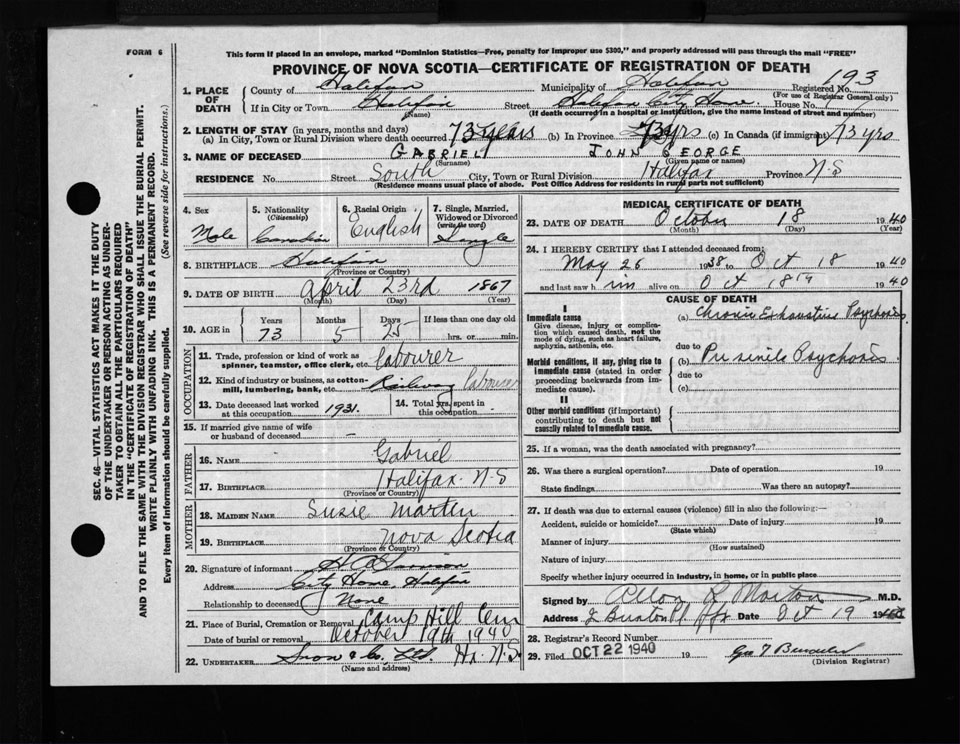 FORM 6
This form if placed in an envelope, marked "Dominion Statistics—Free, penalty for improper use $300," and properly addressed will pass through the mail "FREE"
PROVINCE OF NOVA SCOTIA—CERTIFICATE OF REGISTRATION OF DEATH
193
1. PLACE OF DEATH
County of Halifax Municipality of Halifax Registered No.
(For use of Registrar General only)
If in City or Town Halifax Street Halifax City Home House No.
(Name) (If death occurred in a hospital or institution, give the name instead of street and number)
2. LENGTH OF STAY (in years, months and days)
(a) In City, Town or Rural Division where death occurred 73 years (b) In Province 73 yrs (c) In Canada (if immigrant) 73 yrs
3. NAME OF DECEASED GABRIEL JOHN GEORGE
(Surname) (Given name or names)
RESIDENCE No. Street South City, Town or Rural Division Halifax Province N-S
(Residence means usual place of abode. Post Office Address for residents in rural parts not sufficient)
4. Sex Male
5. Nationality (Citizenship) Canadian
6. Racial Origin English
7. Single, Married, Widowed or Divorced (write the word) Single
8. BIRTHPLACE Halifax
(Province or Country)
9. DATE OF BIRTH April 23rd 1867
(Month) (Day) (Year)
10. AGE in Years Months Days If less than one day old
73 5 25 hrs. or min.
OCCUPATION
11. Trade, profession or kind of work as spinner, teamster, office clerk, etc. Labourer
12. Kind of industry or business, as cotton-mill, lumbering, bank, etc. Railway Labourer
13. Date deceased last worked at this occupation 1931.
14. Total yrs. spent in this occupation
15. If married give name of wife or husband of deceased —
FATHER
16. NAME Gabriel
17. BIRTHPLACE Halifax N-S
(Province or Country)
MOTHER
18. MAIDEN NAME Susie Martin
19. BIRTHPLACE Nova Scotia
(Province or Country)
20. Signature of informant
Address City Home, Halifax
Relationship to deceased None
21. Place of Burial, Cremation or Removal Camp Hill Cem
Date of burial or removal October 19th 1940
22. UNDERTAKER Snow & Co. Ltd. Hx. N.S.
(Name and address)
MEDICAL CERTIFICATE OF DEATH
23. DATE OF DEATH October 18 1940
(Month) (Day) (Year)
24. I HEREBY CERTIFY that I attended deceased from:
May 26 1938 to Oct 18 1940
and last saw him alive on Oct 18th 1940
CAUSE OF DEATH
I
Immediate cause
Give disease, injury or complication which caused death, not the mode of dying, such as heart failure, asphyxia, asthenia, etc.
(a) Chronic Exhaustive Psychosis
due to
Morbid conditions, if any, giving rise to immediate cause (stated in order proceeding backwards from immediate cause).
(b) Pre senile Psychosis
due to
(c)
II
Other morbid conditions (if important) contributing to death but not causally related to immediate cause.
25. If a woman, was the death associated with pregnancy?
26. Was there a surgical operation? Date of operation 19
State findings Was there an autopsy?
27. If death was due to external causes (violence) fill in also the following:—
Accident, suicide or homicide? Date of injury 19
(State which)
Manner of injury
(How sustained)
Nature of injury
Specify whether injury occurred in industry, in home, or in public place
Signed by Allan R Morton M.D.
Address Hfx Date Oct 19 1940
28. Registrar's Record Number
29. Filed OCT 22 1940 19
(Division Registrar)
SEC. 46—VITAL STATISTICS ACT MAKES IT THE DUTY
OF THE UNDERTAKER OR PERSON ACTING AS UNDER-
TAKER TO OBTAIN ALL THE PARTICULARS REQUIRED
IN THE "CERTIFICATE OF REGISTRATION OF DEATH"
AND TO FILE THE SAME WITH THE DIVISION REGISTRAR WHO SHALL ISSUE THE BURIAL PERMIT.
WRITE PLAINLY WITH UNFADING INK. THIS IS A PERMANENT RECORD.
Every item of information should be carefully supplied. (See reverse side for instructions.)